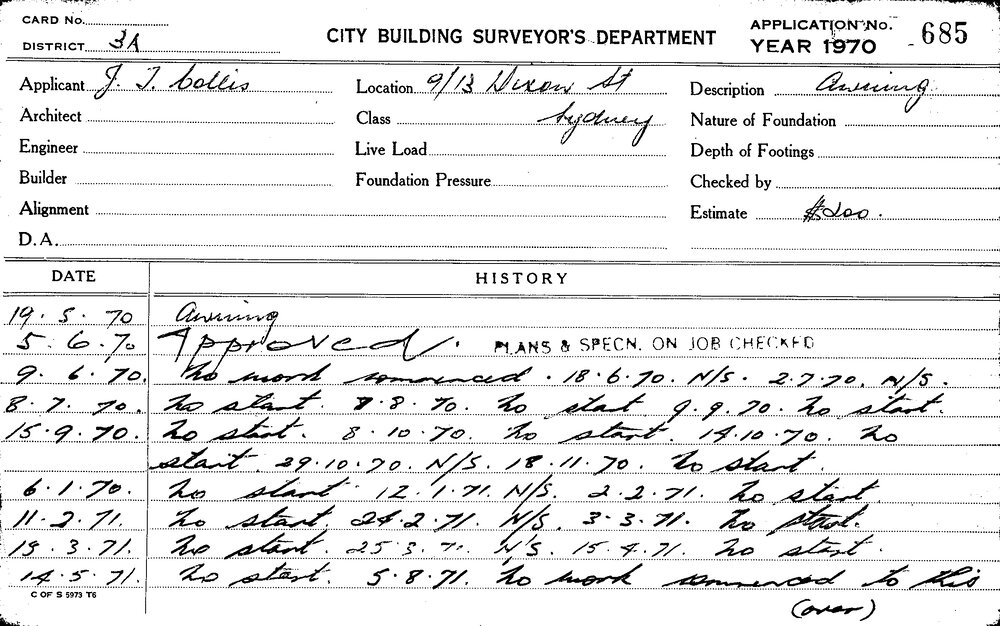 CARD No.
DISTRICT 3A
CITY BUILDING SURVEYOR'S DEPARTMENT
APPLICATION No. 685
YEAR 1970
Applicant J. T. Collis
Location 9/13 Dixon St
Description Awning
Architect
Class Sydney
Nature of Foundation
Engineer
Live Load
Depth of Footings
Builder
Foundation Pressure
Checked by
Alignment
Estimate $200.
D.A.
DATE HISTORY
19.5.70 Awning
5.6.70 Approved. PLANS & SPECN. ON JOB CHECKED
9.6.70. No work commenced. 18.6.70. N/S. 2.7.70. N/S.
8.7.70. No start. 7.8.70. No start 9.9.70. No start.
15.9.70. No start. 8.10.70. No start. 14.10.70. No
start. 29.10.70. N/S. 18.11.70. No start.
6.1.70. No start. 12.1.71. N/S. 2.2.71. No start.
11.2.71. No start. 24.2.71. N/S. 3.3.71. No start.
19.3.71. No start. 25.3.71. N/S. 15.4.71. No start.
14.5.71. No start. 5.8.71. No work commenced to this
C OF S 5973 T6
(over)